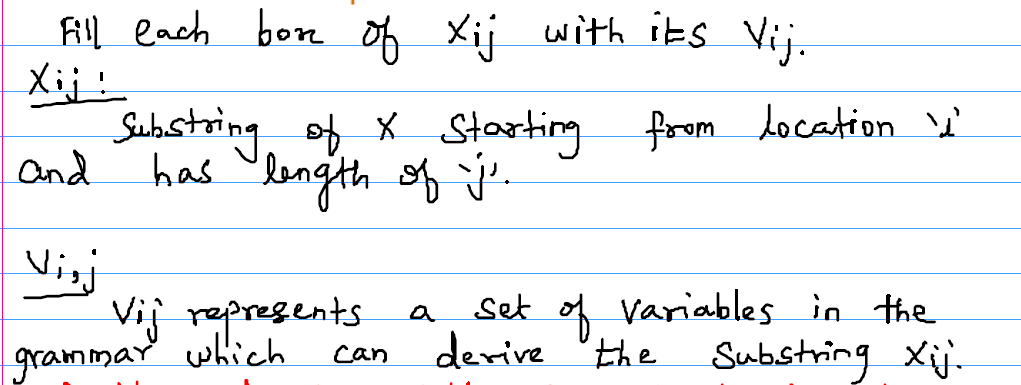 Fill each box of Xij with its Vij.
Xij :
Substring of X Starting from location 'i'
and has length of 'j'.
Vi,j
Vij represents a set of variables in the
grammar which can derive the Substring Xij.